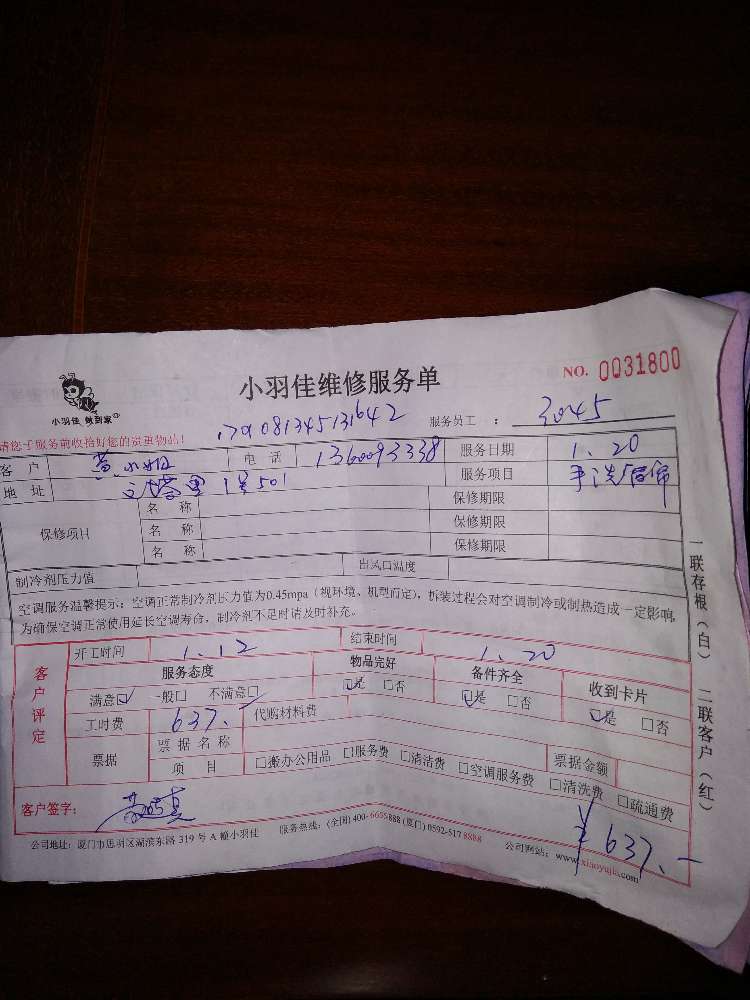 小羽佳维修服务单
NO. 0031800
小羽佳 敏到家
请您于服务前收拾好您的贵重物品!
服务员工 : 3045
客 户 黄小姐 电 话 1360093338 服务日期 1.20
地 址 1号501 服务项目
保修项目 名 称 保修期限
名 称 保修期限
名 称 保修期限
制冷剂压力值 出风口温度
空调服务温馨提示:空调正常制冷剂压力值为0.45mpa(视环境、机型而定),拆装过程会对空调制冷或制热造成一定影响,
为确保空调正常使用延长空调寿命,制冷剂不足时请及时补充。
一联存根(白) 二联客户(红)
客户评定
开工时间 1.12 结束时间 1.20
服务态度 物品完好 备件齐全 收到卡片
满意☑ 一般□ 不满意□ ☑是 □否 ☑是 □否 ☑是 □否
工时费 637.- 代购材料费
票据 票据名称 票据金额
项 目 □搬办公用品 □服务费 □清洁费 □空调服务费 □清洗费 □疏通费
客户签字:
¥637.-
公司地址:厦门市思明区湖滨东路 319 号 A 幢小羽佳 服务热线:(全国)400-6655888 (厦门)0592-517 8888 公司网站:www.xiaoyujia.com